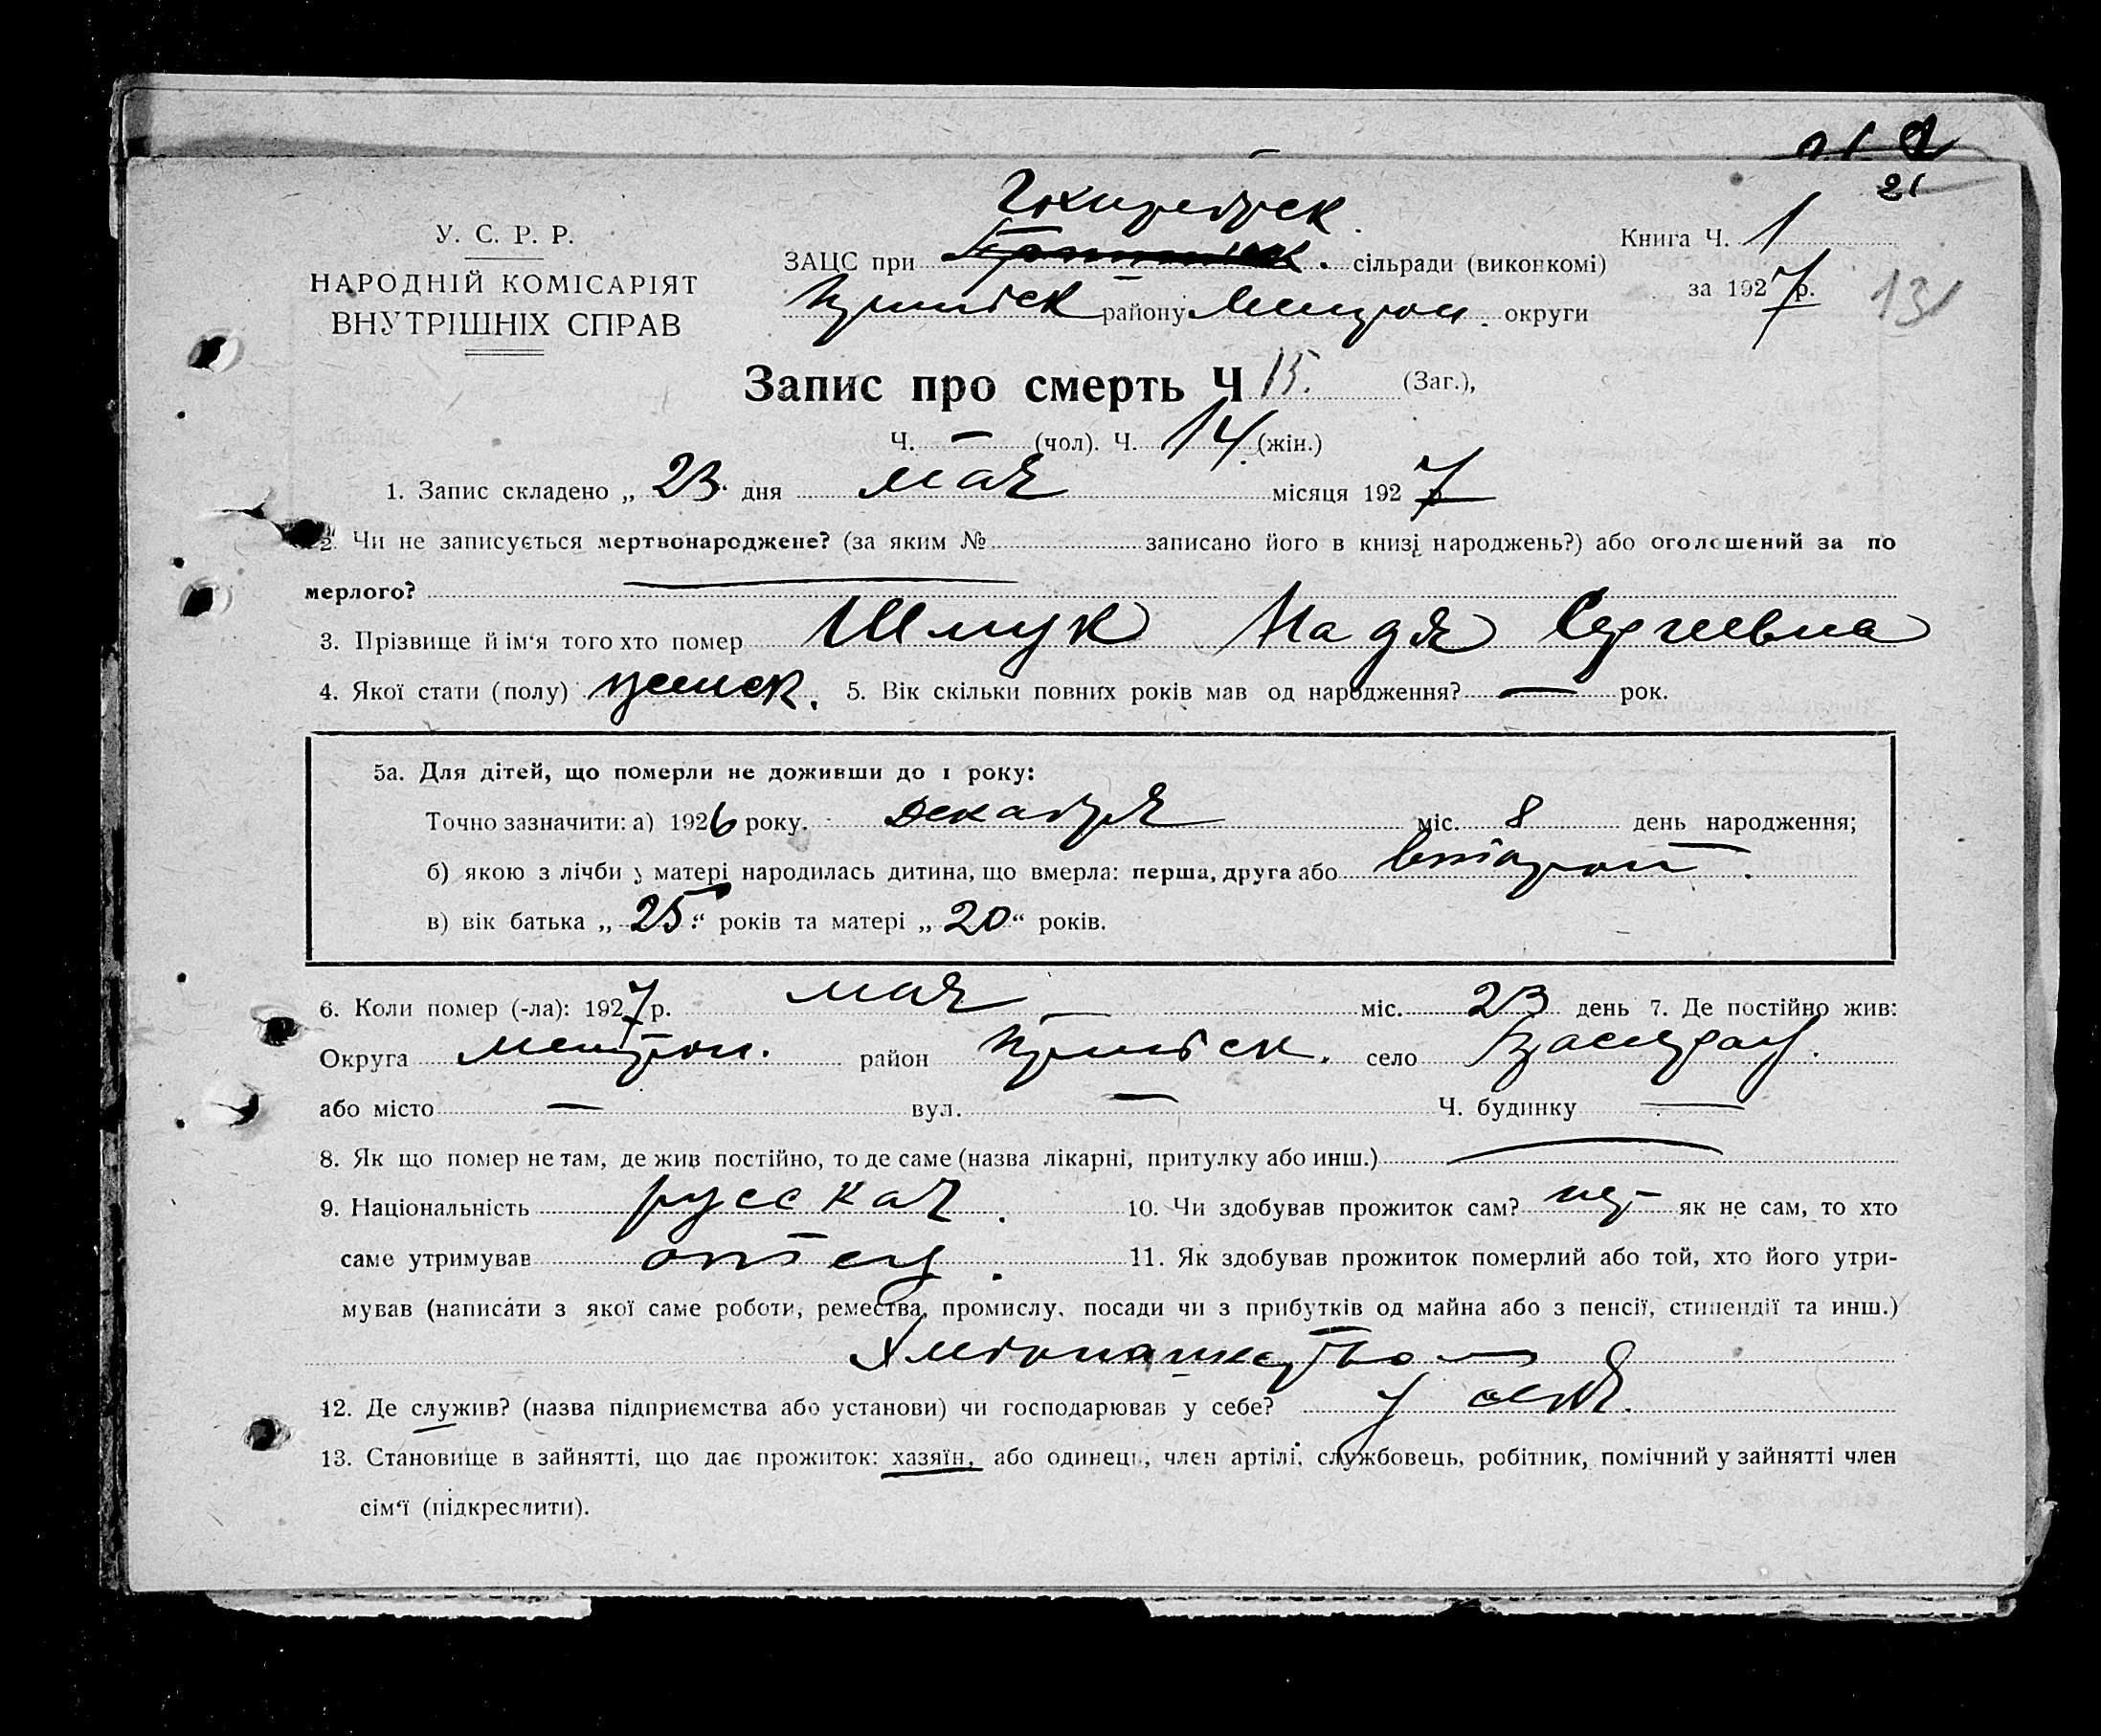 21
У. С. Р. Р.
НАРОДНІЙ КОМІСАРІЯТ
ВНУТРІШНІХ СПРАВ
ЗАЦС при сільради (виконкомі)
району округи
Книга Ч. 1
за 1927 р.
13
Запис про смерть Ч 15. (Заг.),
Ч. — (чол). Ч. 14 (жін.)
1. Запис складено „ 23 дня мая місяця 1927 р
2. Чи не записується мертвонароджене? (за яким № записано його в книзі народжень?) або оголошений за по
мерлого?
3. Прізвище й ім‘я того хто помер Шмук Надя Сергеевна
4. Якої стати (полу) женск. 5. Вік скільки повних років мав од народження? — рок.
5а. Для дітей, що померли не доживши до 1 року:
Точно зазначити: а) 1926 року. декабря міс. 8 день народження;
б) якою з лічби у матері народилась дитина, що вмерла: перша, друга або второй.
в) вік батька „ 25 “ років та матері „ 20 “ років.
6. Коли помер (-ла): 1927 р. мая міс. 23 день 7. Де постійно жив:
Округа район село
або місто — вул. — Ч. будинку —
8. Як що помер не там, де жив постійно, то де саме (назва лікарні, притулку або инш.) —
9. Національність русская. 10. Чи здобував прожиток сам? нет як не сам, то хто
саме утримував отец. 11. Як здобував прожиток померлий або той, хто його утри-
мував (написати з якої саме роботи, ремества, промислу, посади чи з прибутків од майна або з пенсії, стипендії та инш.)
Хлебопашество
12. Де служив? (назва підприємства або установи) чи господарював у себе? у себя.
13. Становище в зайнятті, що дає прожиток: хазяїн, або одинець, член артілі, службовець, робітник, помічний у зайнятті член
сім‘ї (підкреслити).